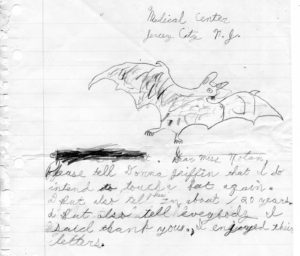 Medical Center
Jersey City N.J.
Dear Miss Nolan,
Please tell Donna Griffin that I do
intend to touch a bat again.
But also tell in about 20 years.
But also tell everybody I
said thank you. I enjoyed their
letters.